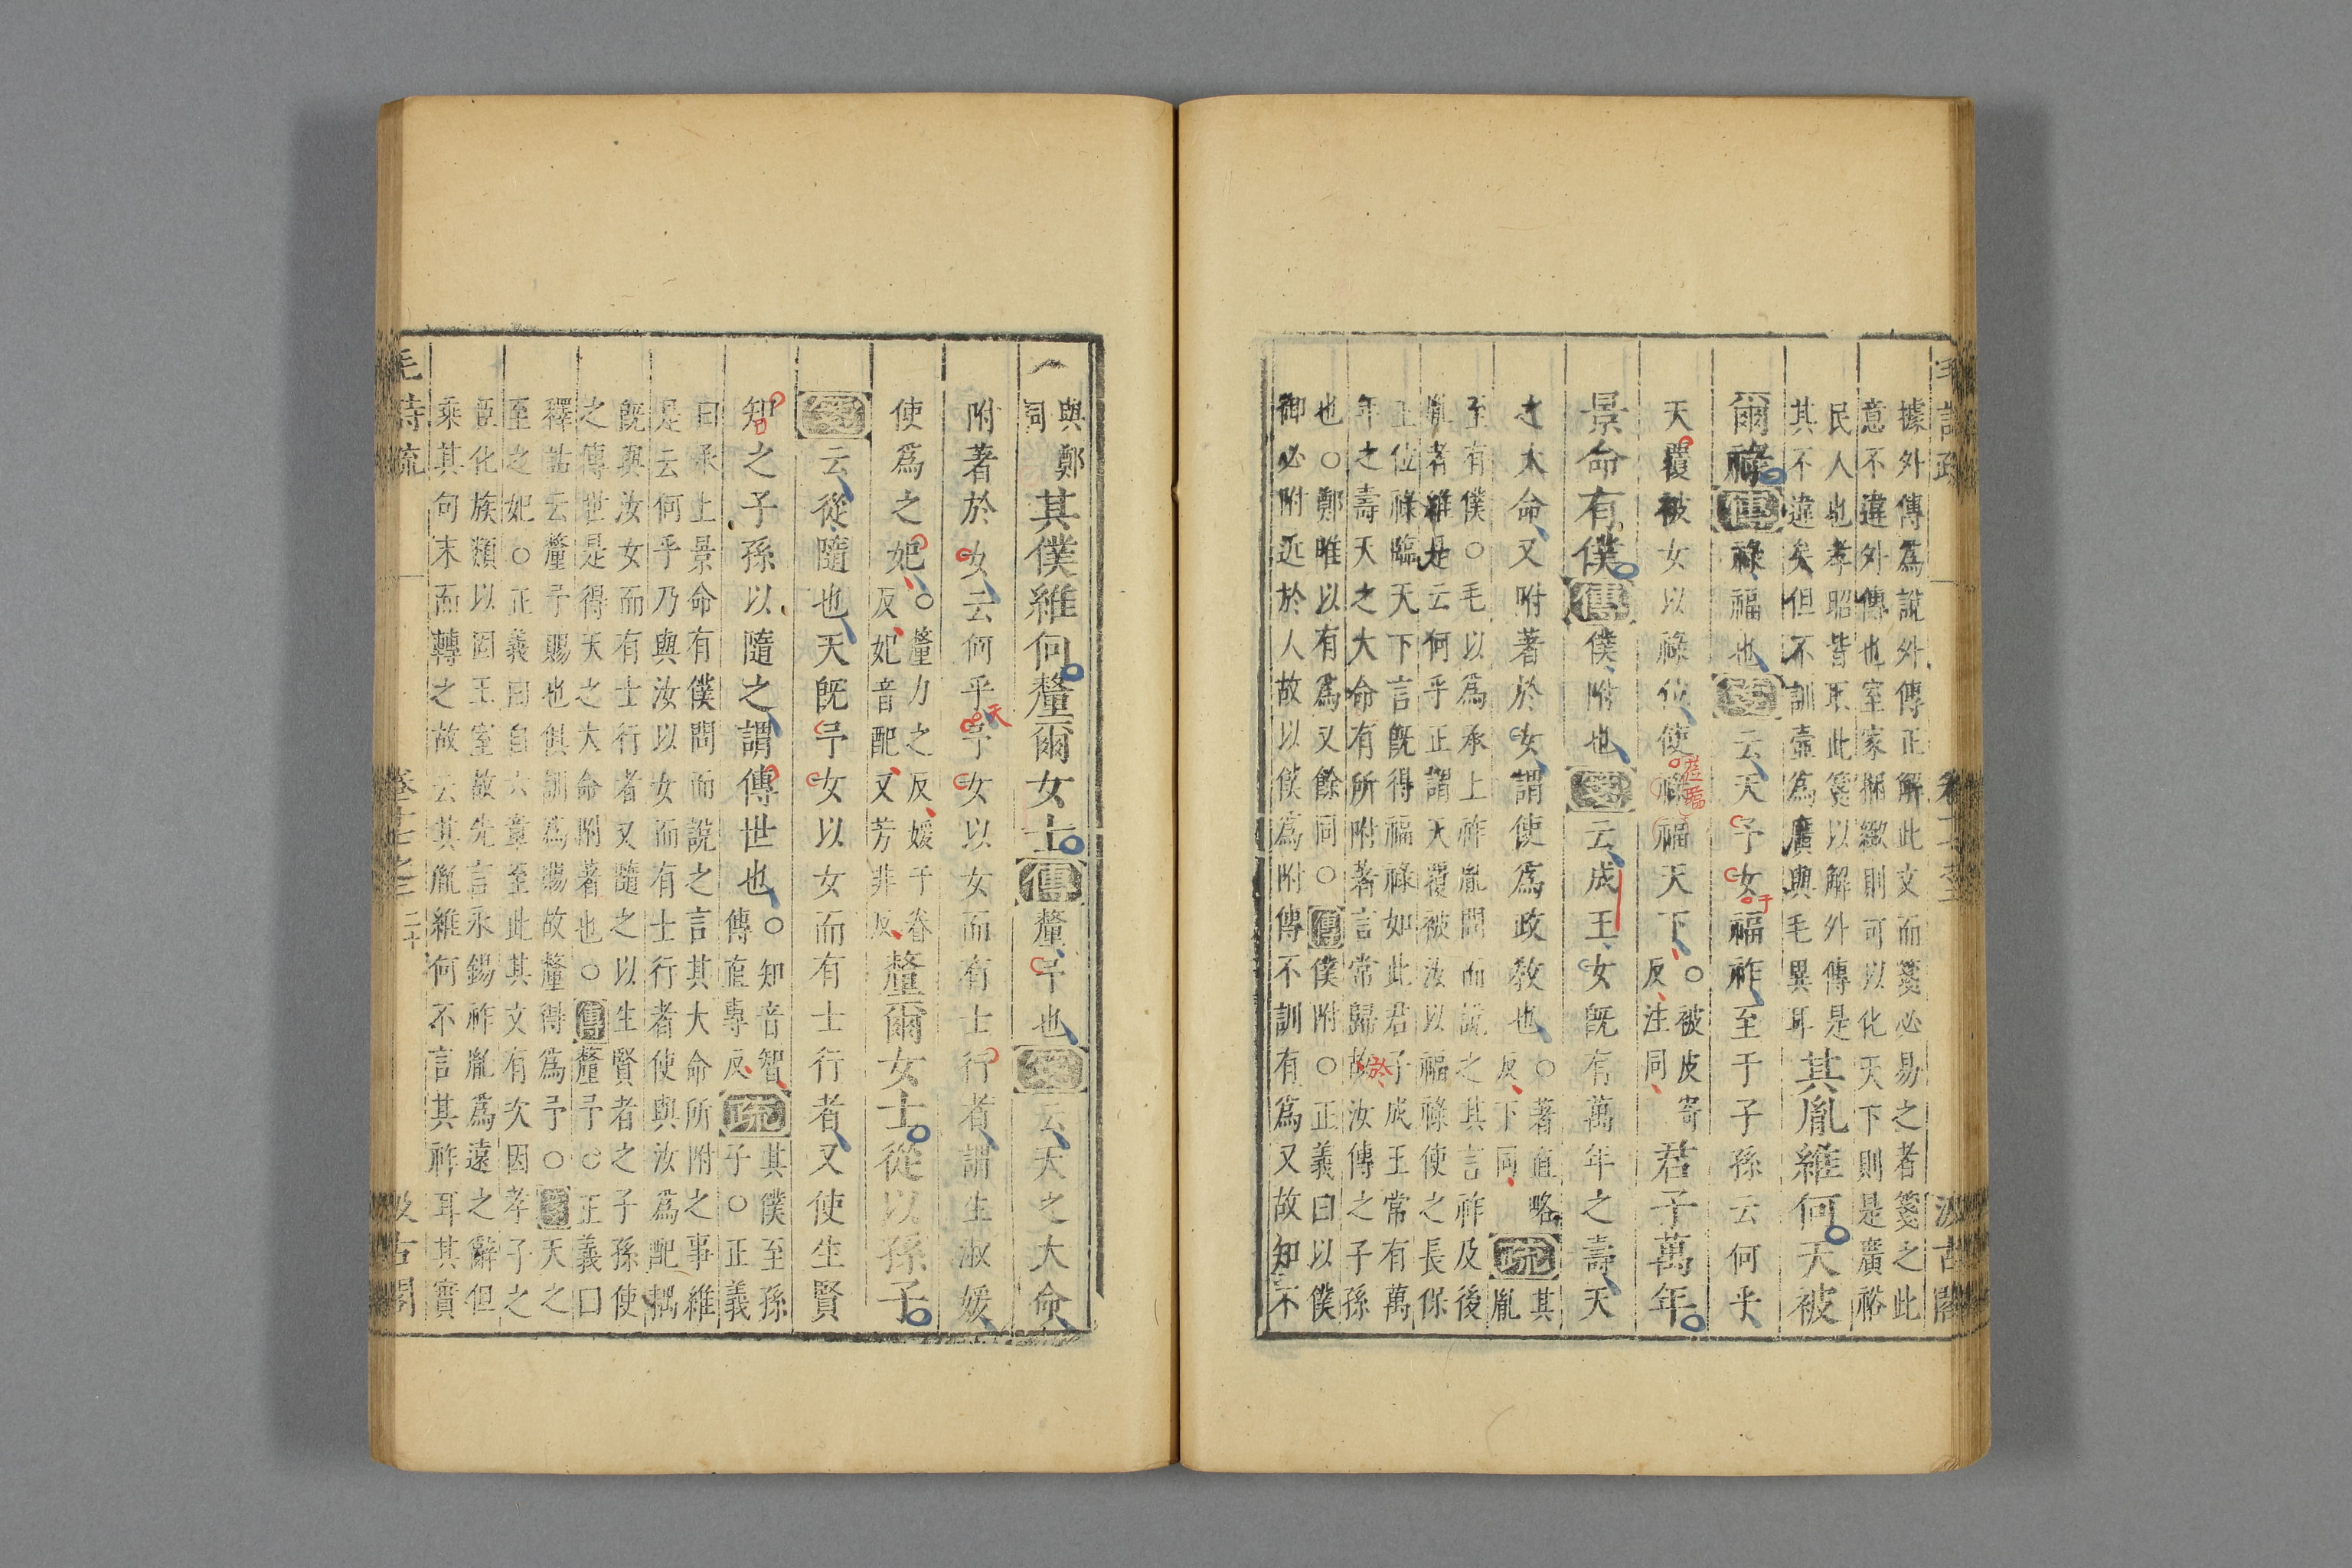 據外傳爲說外傳正解此文而箋必易之者箋之此
意不違外傳也室家捆緻則可以化天下則是廣裕
民人也孝昭皆取此箋以解外傳是
其不違矣但不訓壼爲廣與毛異耳
其胤維何天被
爾祿傳祿福也箋云天予女福祚至于子孫云何乎
于
天覆被女以祿位使祿福天下
莅臨
○被皮寄
反注同
君子萬年
景命有僕傳僕附也箋云成王女既有萬年之壽天
之大命又附著於女謂使爲政敎也
○著直略
反下同
疏
其
胤
至有僕○毛以爲承上祚胤問而說之其言祚及後
胤者維是云何乎正謂天覆被汝以福祿使之長保
王位祿臨天下言既得福祿如此君子成王常有萬
年之壽天之大命有所附著言常歸故汝傳之子孫
於
也○鄭唯以有爲又餘同○傳僕附○正義曰以僕
御必附近於人故以僕爲附傳不訓有爲又故知不
與鄭
同
其僕維何釐爾女士傳釐予也箋云天之大命
附著於女云何乎予女以女而有士行者謂生淑媛
天
使爲之妃
○釐力之反媛于眷
反妃音配又芳非反
釐爾女士從以孫子
箋云從隨也天既予女以女而有士行者又使生賢
知之子孫以隨之謂傳世也
○知音智
傳直專反
疏
其僕至孫
子○正義
曰承上景命有僕問而說之言其大命所附之事維
是云何乎乃與汝以女而有士行者使與汝爲配耦
既與汝女而有士行者又隨之以生賢者之子孫使
之傳世是得天之大命附著也○傳釐予○正義曰
釋詁云釐予賜也俱訓爲賜故釐得爲予○箋天之
至之妃○正義曰自六章至此其文有次因孝子之
臣化族類以固王室故先言永錫祚胤爲遠之辭但
乘其句末而轉之故云其胤維何不言其祚耳其實
毛詩疏
卷十七之二
二十
汲古閣